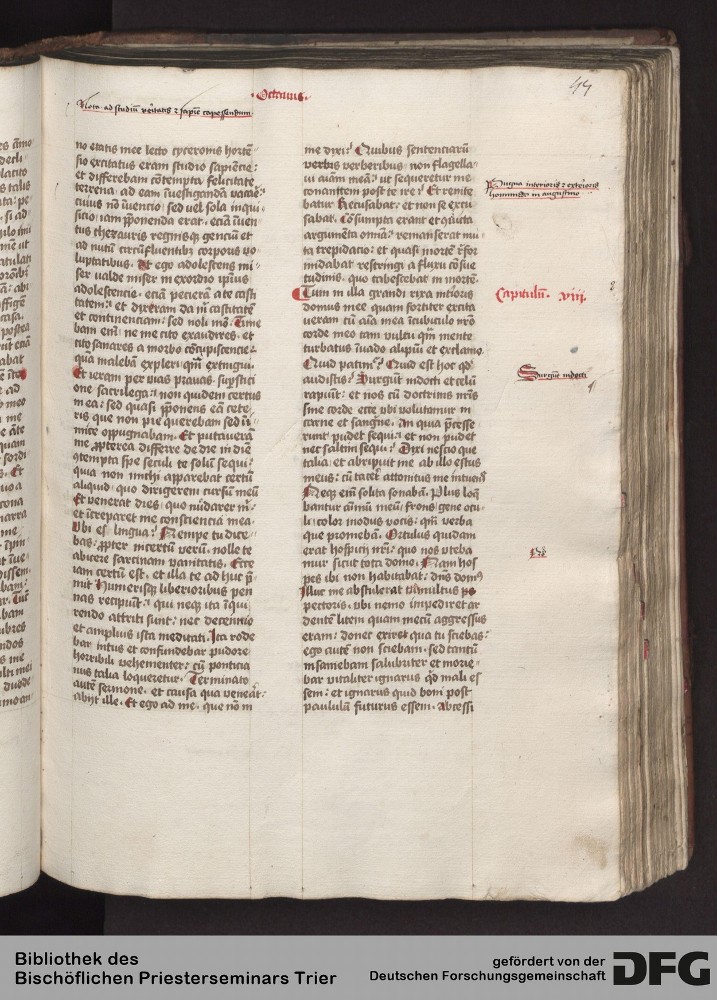 ·Octauus·
44
Nota ad studiū veritatis et sapiē capessendam
no etatis mee lecto cyceronis hortē
sio excitatus eram studio sapiēcie:
et differebam cōtempta felicitate
terrena ad eam īuestigandā vacare
cuius nō īuencio sed vel sola inqui
sicio iam p̄ponenda erat, eciā īuen
tus thezauris regnisqȝ genciū et
ad nutū circūfluentibȝ corporis vo
luptatibus. At ego adolescens mi
ser valde miser in exordio ipīus
adolescencie, eciā pecierā a te casti
tatem: et dixeram da mͥ castitatē
et continenciam: sed noli mō. Time
bam enī ne me cito exaudires, et
cito sanares a morbo cōcupiscencie
quā malebā expleri qͣm extingui.
Et ieram per vias prauas supstici
one sacrilega: non quidem certus
in ea: sed quasi p̄ponens eā cete
ris que non pie querebam sed ī
mice oppugnabam. Et putauerā
me ꝓpterea differre de die in diē
ꝯtempta spe seculi te solū sequi:
quia non michi apparebat certū
aliquid quo dirigerem cursū meū
Et venerat dies quo nudarer mͥ:
et īcreparet me consciencia mea.
Vbi es lingua? Nempe tu dice
bas, ꝓpter incertū verū, nolle te
abicere sarcinam vanitatis. Ecce
iam certū est, et illa te ad huc p̄
mit Humerisqȝ liberioribus pen
nas recipiūt: qui neqȝ ita īqui
rendo attriti sunt: nec decennio
et amplius ista meditati. Ita rode
bar intus et confundebar pudore
horribili vehementer: cū ponticia
nus talia loqueretur. Terminato
autē sermone, et causa qua veneāt:
abijt ille. Et ego ad me, que nō in
me dixi? Quibus sentenciarū
verbis verberibus non flagella
ui aīam meā? ut sequeretur me
conantem post te ire? Et renite
batur Recusabat: et non se excu
sabat. Cōsumpta erant et ꝯuicta
argumēta omīa? remanserat mu
ta trepidacio: et quasi mortē rfor
midabat restringi a fluxu cōsue
tudinis, quo tabescebat in mortē.
Tum in illa grandi rixa īterioris
domus mee quam fortiter excita
ueram cū aīa mea ī cubiculo nrō
corde meo tam vultu qͣm mente
turbatus īuado alipiū et exclamo.
Quid patimr? Quid est hoc qd
audistis? Surgūt indocti et celū
rapiūt: et nos cū doctrinis nrīs
sine corde ecce vbi volutamur in
carne et sangne. An quia p̄cesse
runt pudet sequi: et non pudet
nec saltim sequi? Dixi nescio que
talia et abripuit me ab illo estus
meus: cū tacēt attonitus me intuens
Neqȝ enī solita sonabā. Plus loq̄
bantur aīmū meū frons gene ocu
li color modus vocis: qͣm verba
que promebā. Ortulus quidam
erat hospicij nrī: quo nos vteba
mur sicut tota domo. Nam hos
pes ibi non habitabat: dns domꝰ
Illuc me abstulerat tumultus pe
pectoris: vbi nemo impediret ar
dentē litem quam mecū aggressus
eram: donec exiret qua tu sciebas:
ego autē non sciebam. sed tantū
insaniebam salubriter et morie
bar vitaliter ignarus qd mali es
sem: et ignarus quid boni post
paululū futurus essem. Abcessi
Pugna interioris et exterioris
hominis in augustino
Capitulū. viii.
Surgūt indocti
Bibliothek des
Bischöflichen Priesterseminars Trier
gefördert von der
Deutschen Forschungsgemeinschaft
DFG